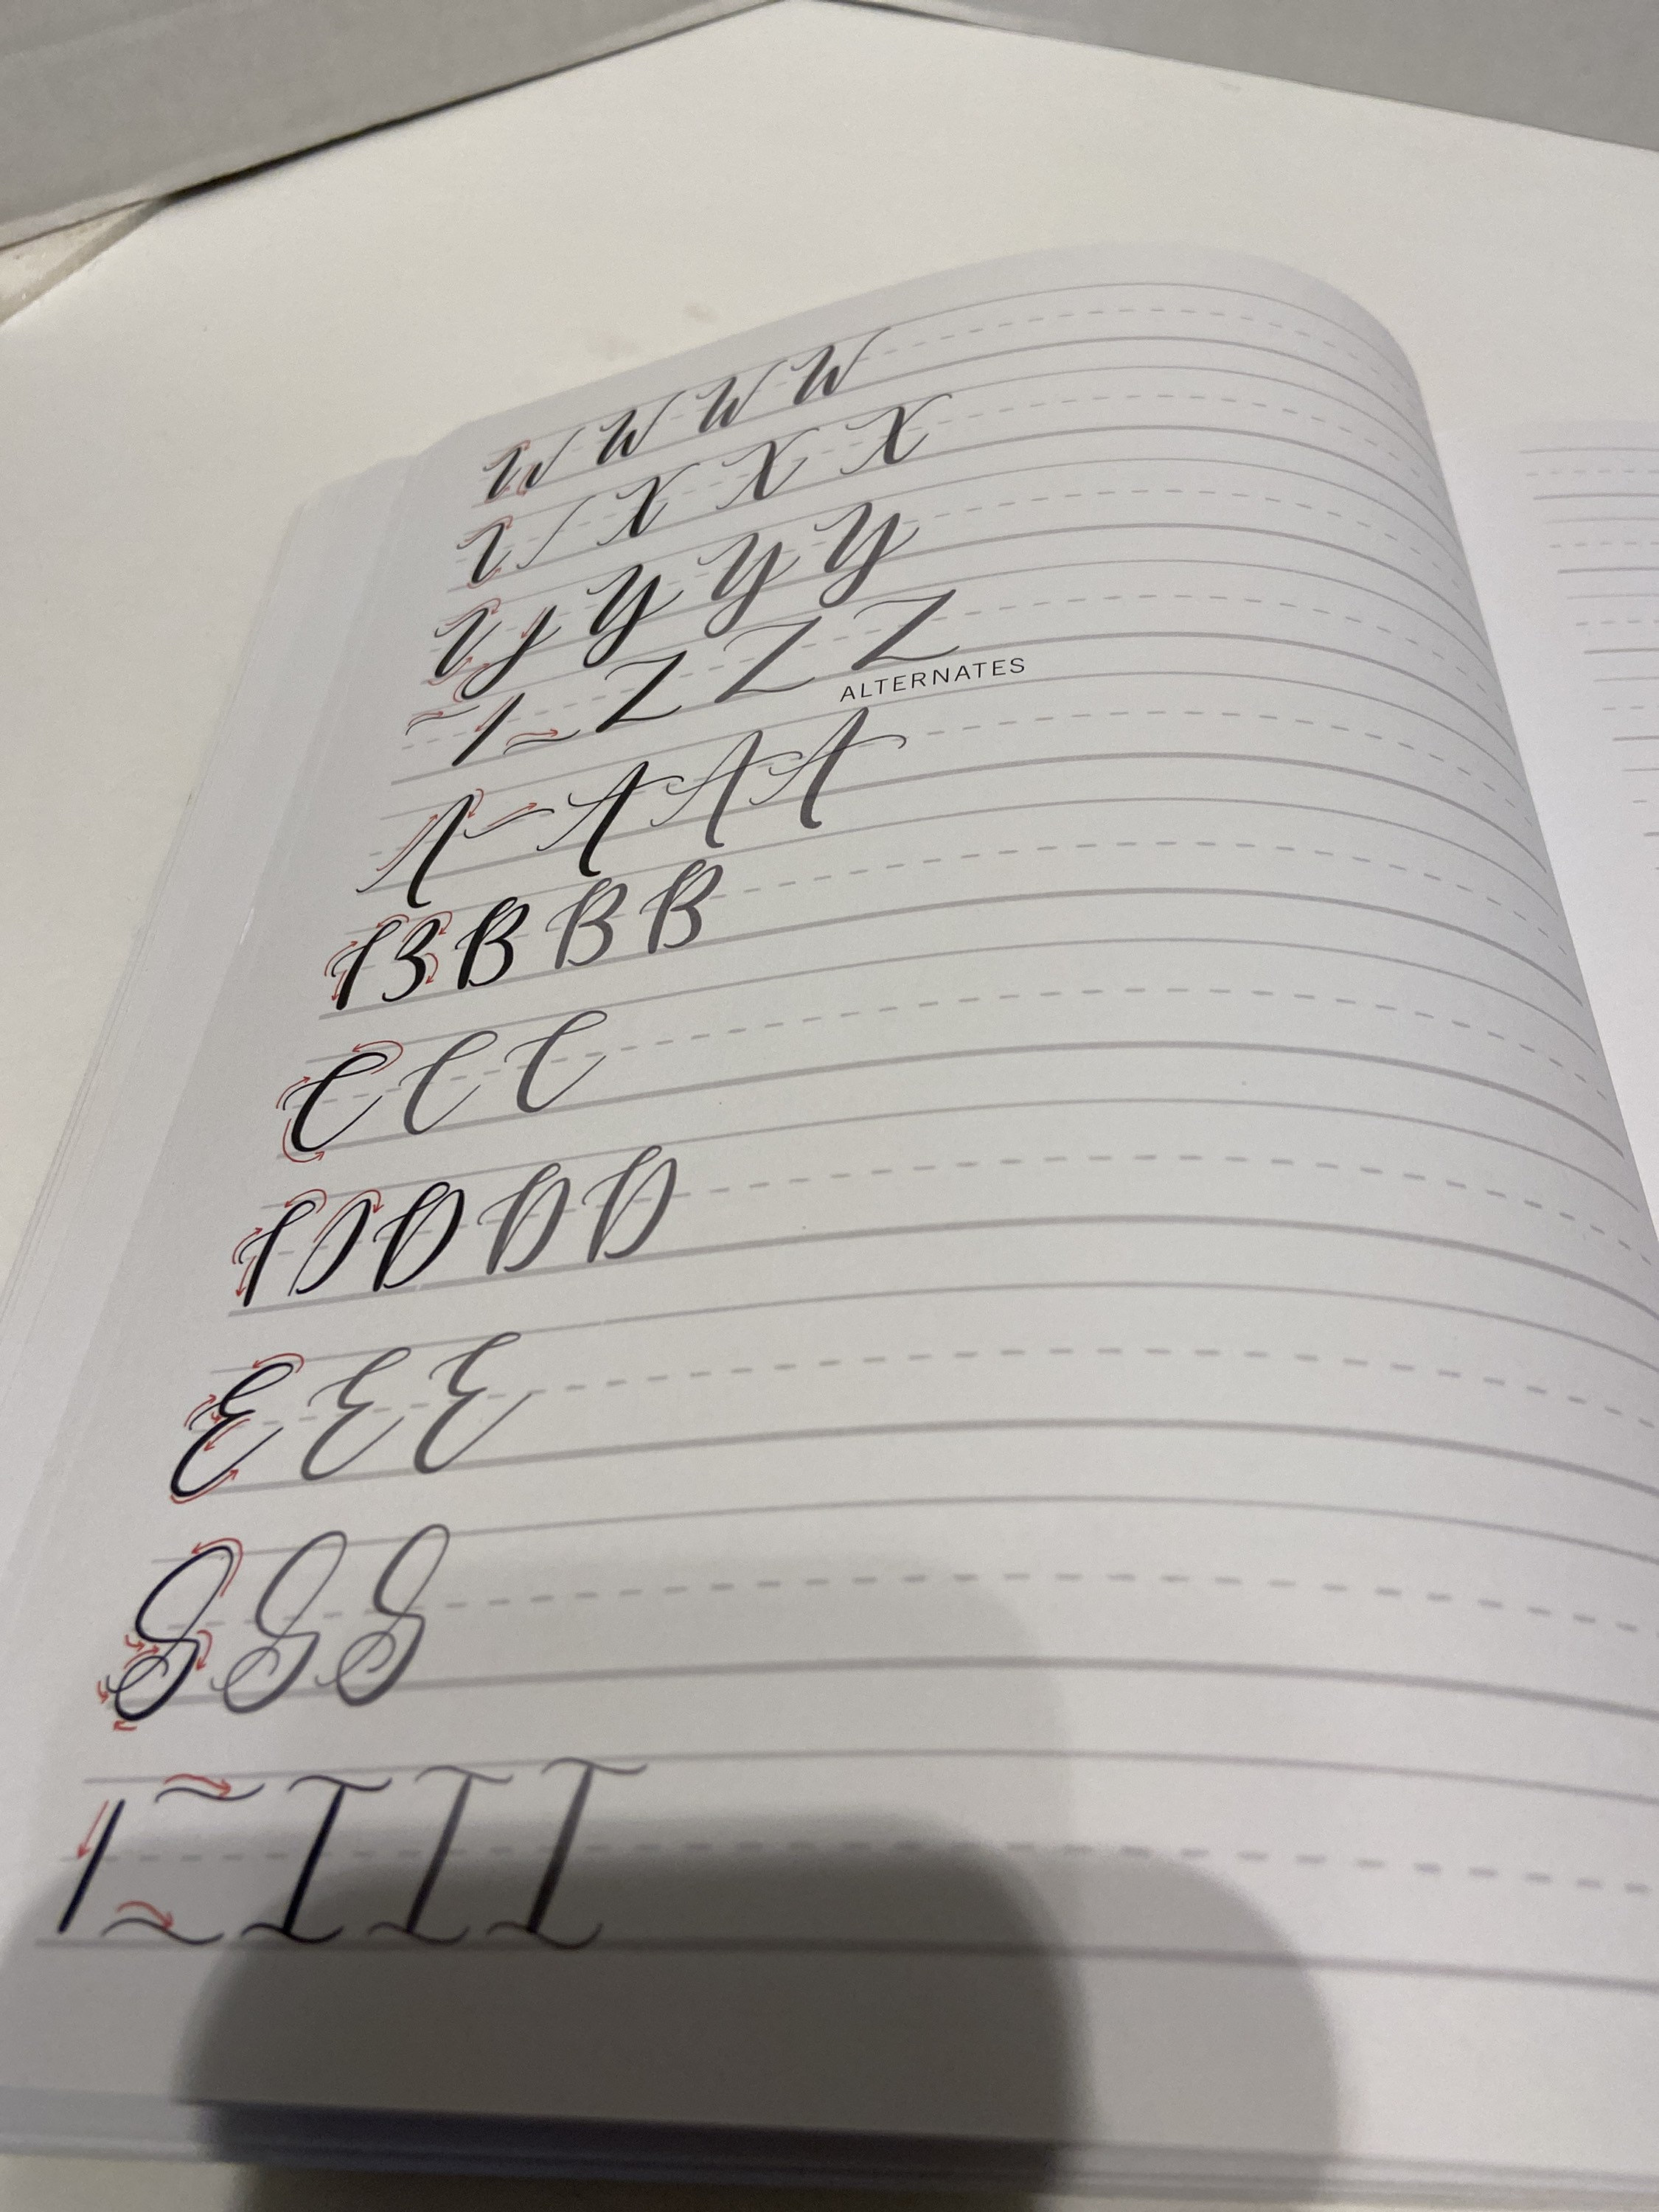 W W W W
X X X
Y Y Y
Z Z Z
ALTERNATES
A A A
B B B
C C C
D D D
E E E
G G G
I I I